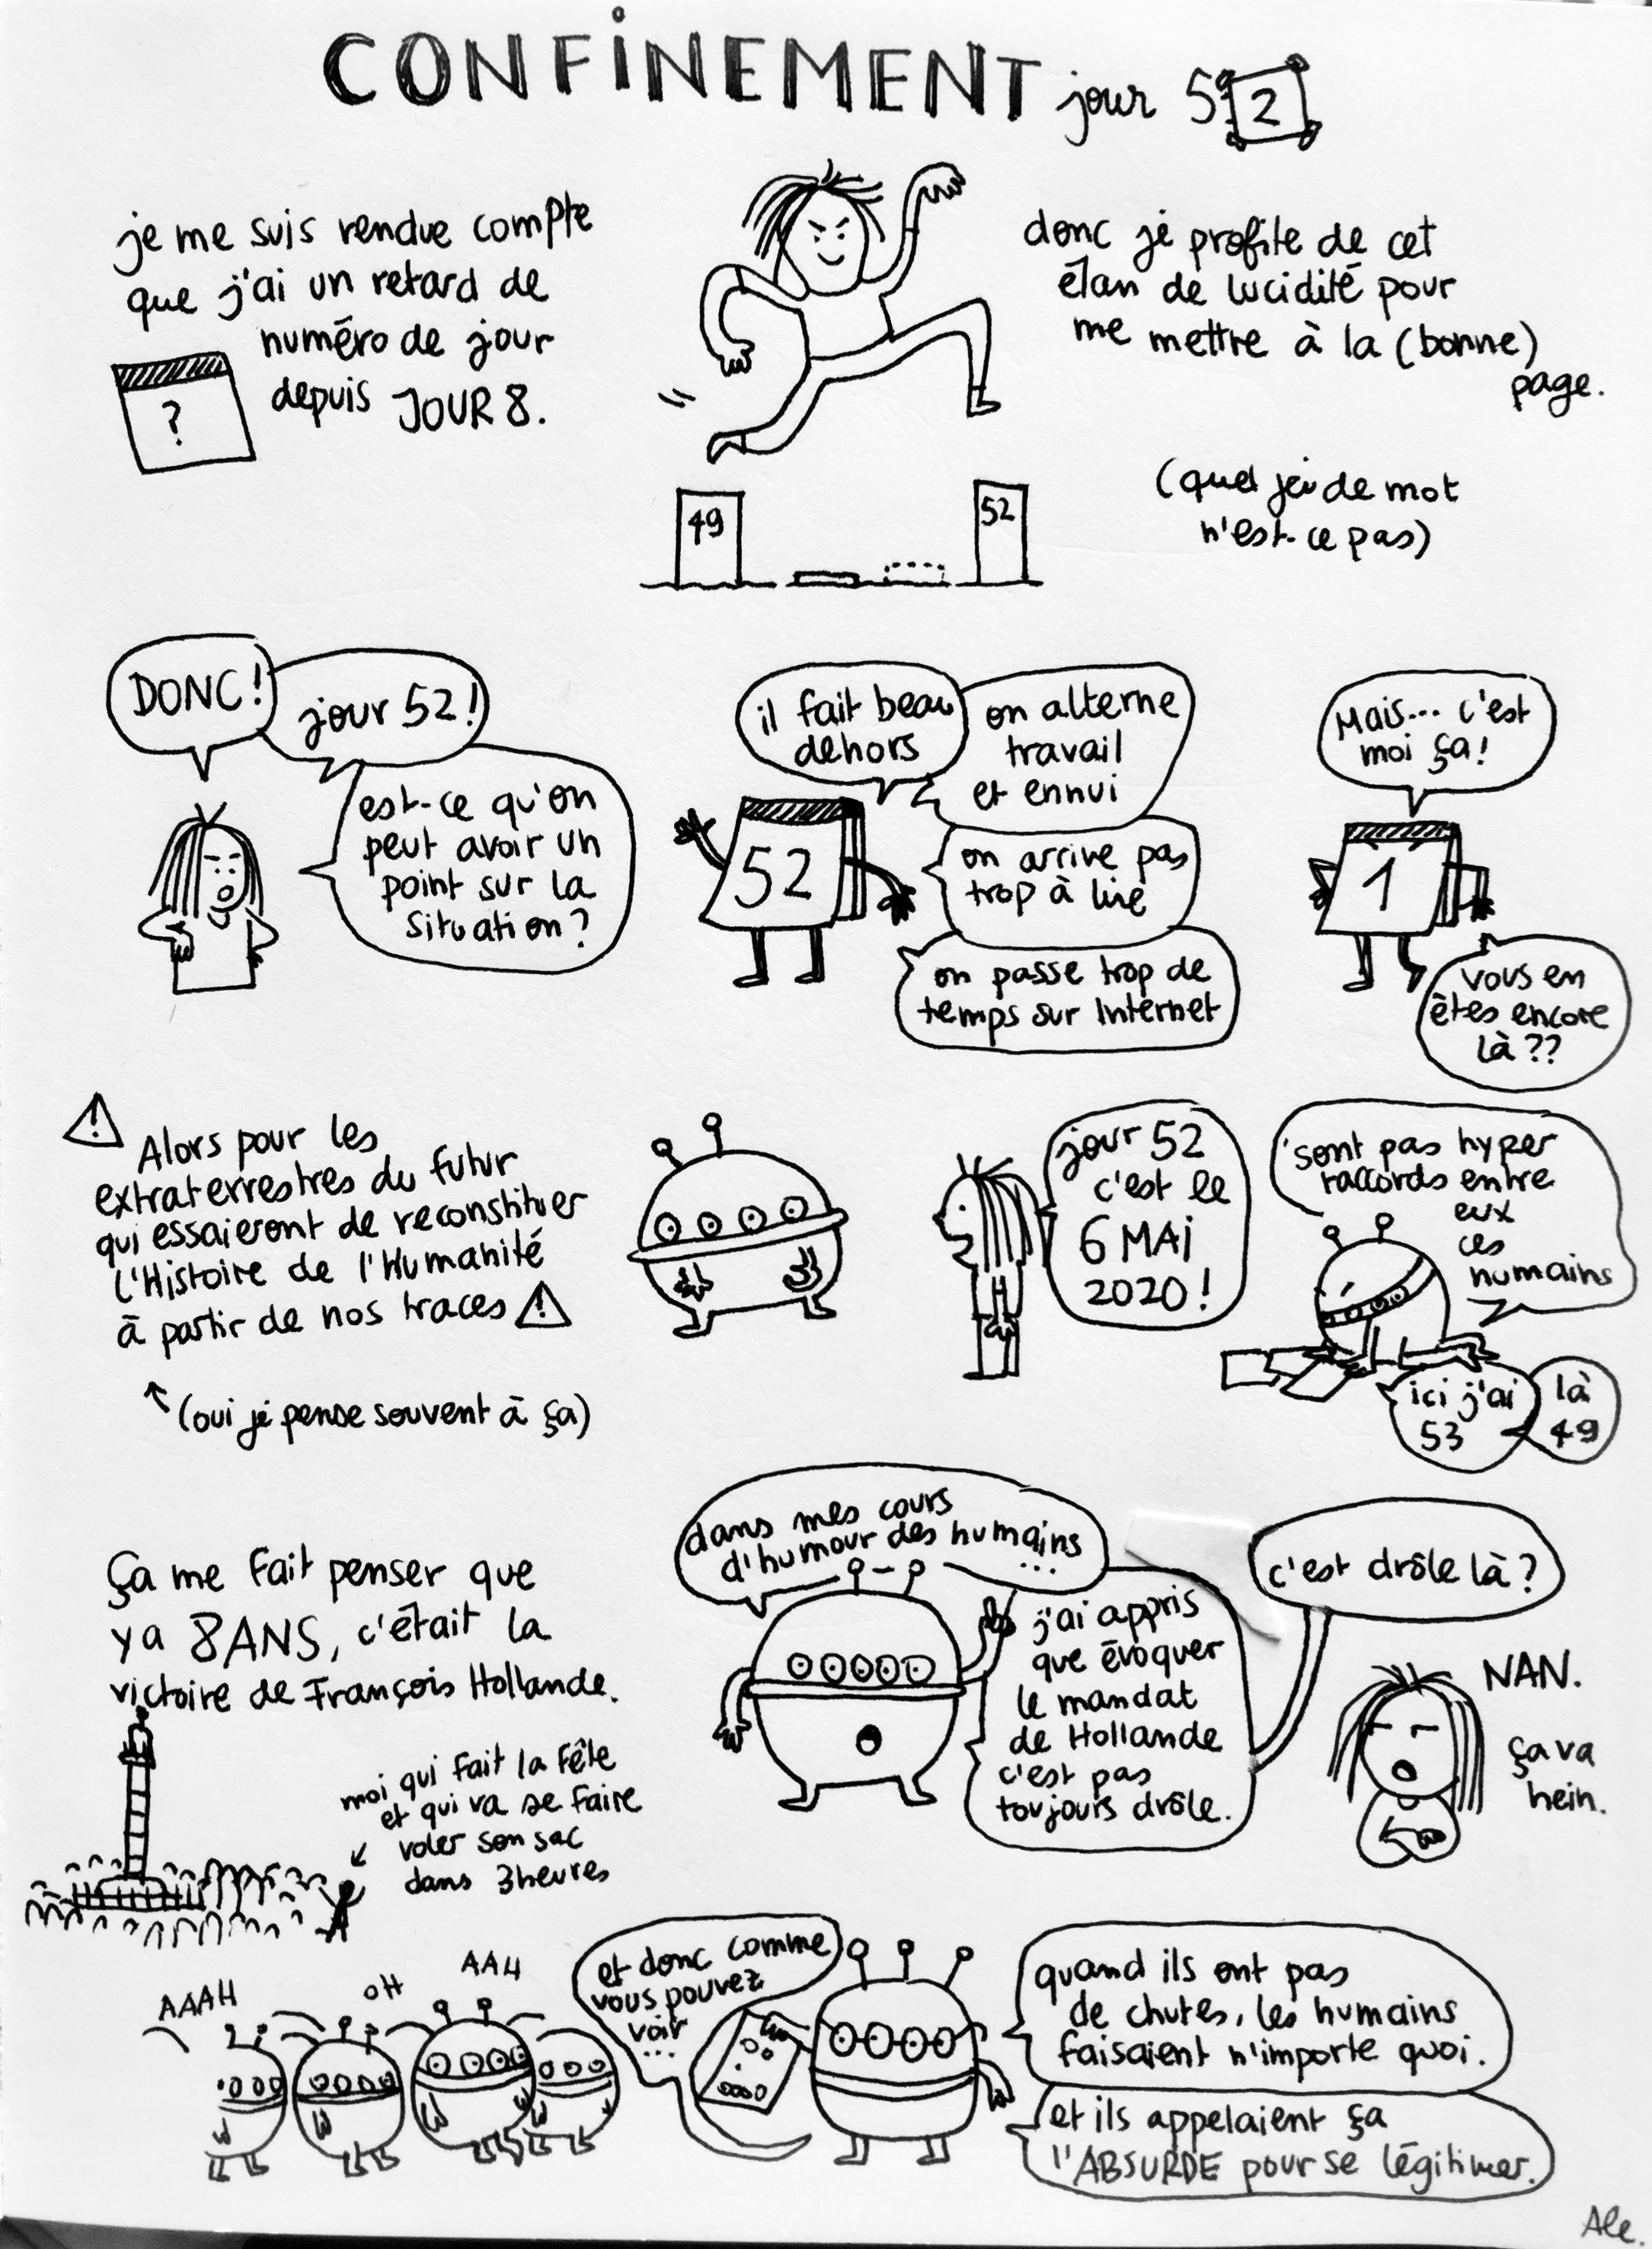 CONFINEMENT jour 52
je me suis rendue compte
que j'ai un retard de
numéro de jour
depuis JOUR 8.
?
donc je profite de cet
élan de lucidité pour
me mettre à la (bonne)
page.
(quel jeu de mot
n'est-ce pas)
49
52
DONC!
jour 52!
est-ce qu'on
peut avoir un
point sur la
situation?
il fait beau
dehors
on alterne
travail
et ennui
52
on arrive pas
trop à lire
on passe trop de
temps sur Internet
Mais... c'est
moi ça!
1
vous en
êtes encore
là??
Alors pour les
extraterrestres du futur
qui essaieront de reconstituer
l'Histoire de l'Humanité
à partir de nos traces
(oui je pense souvent à ça)
jour 52
c'est le
6 MAi
2020!
sont pas hyper
raccords entre
eux
ces
humains
ici j'ai
53
là
49
ça me fait penser que
ya 8 ANS, c'était la
victoire de François Hollande.
moi qui fait la fête
et qui va se faire
voler son sac
dans 3 heures
dans mes cours
d'humour des humains
...
j'ai appris
que évoquer
le mandat
de Hollande
c'est pas
toujours drôle.
c'est drôle là?
NAN.
ça va
hein.
AAAH
OH
AAH
et donc comme
vous pouvez
voir
...
quand ils ont pas
de chutes, les humains
faisaient n'importe quoi.
et ils appelaient ça
l'ABSURDE pour se légitimer.
Ale.